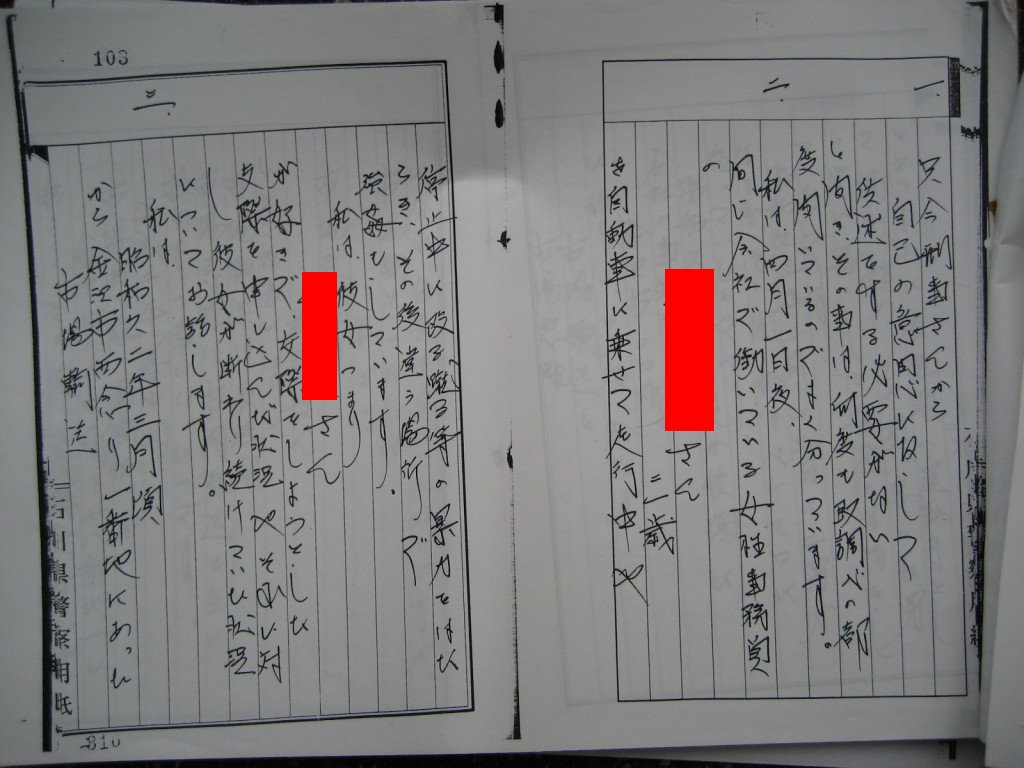 一、
只今刑事さんから
自己の意思に反して
供述をする必要がない
と聞き、その事は、何度も取調べの都
度聞いているのでよく分っています。
二、
私は、四月一日夜、
同じ会社で働いている女性事務員
の
さん
二 歳
を自動車に乗せて走行中や
石川県警察用紙
停止中に殴る蹴る等の暴力をはた
らき、その後違う場所で
強姦もしています。
私は、彼女つまり
さん
が好きで、交際をしようとした
交際を申し込んだ状況やそれに対
し彼女が断り続けていた状況
について お話しします。
三、
私は、
昭和六二年三月頃
から金沢市西念町一番地にあった
市場
石川県警察用紙
103
810